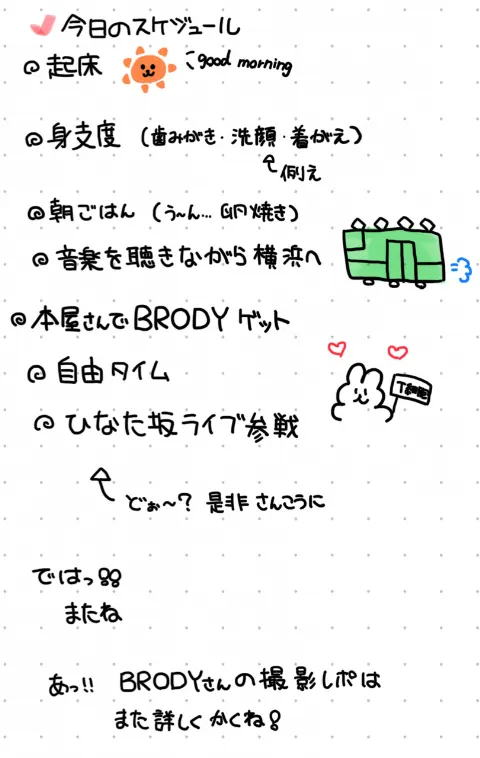 今日のスケジュール
起床 good morning
身支度 (歯みがき・洗顔・着がえ)
例え
朝ごはん (う〜ん… 卵焼き)
音楽を聴きながら横浜へ
本屋さんでBRODYゲット
自由タイム
ひなた坂ライブ参戦
どぉ〜? 是非さんこうに
ではっ!!
またね
あっ!! BRODYさんの撮影レポは
また詳しくかくね!